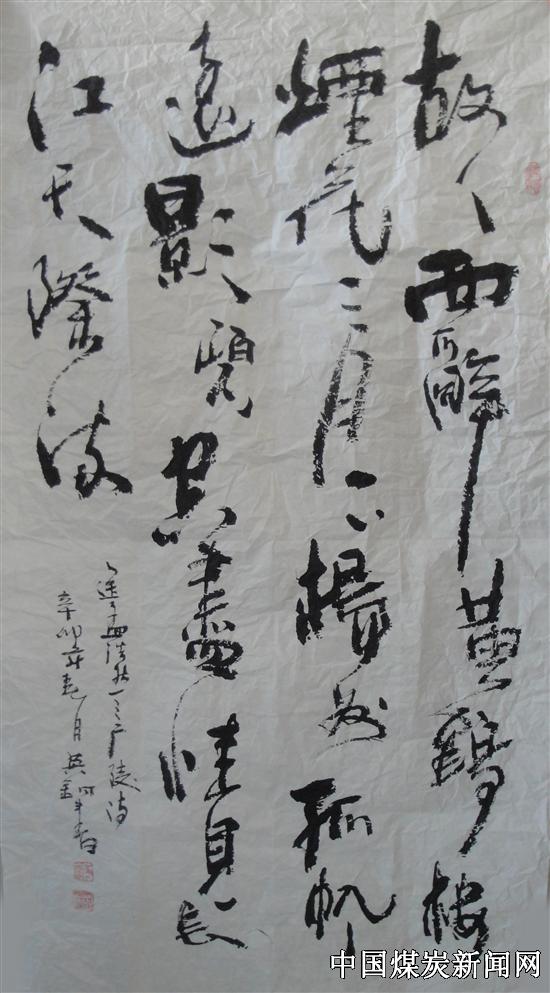 故人西辭黃鶴樓
煙花三月下揚州孤帆
遠影碧空盡惟見長
江天際流
送孟浩然之广陵诗
辛卯年
中国煤炭新闻网